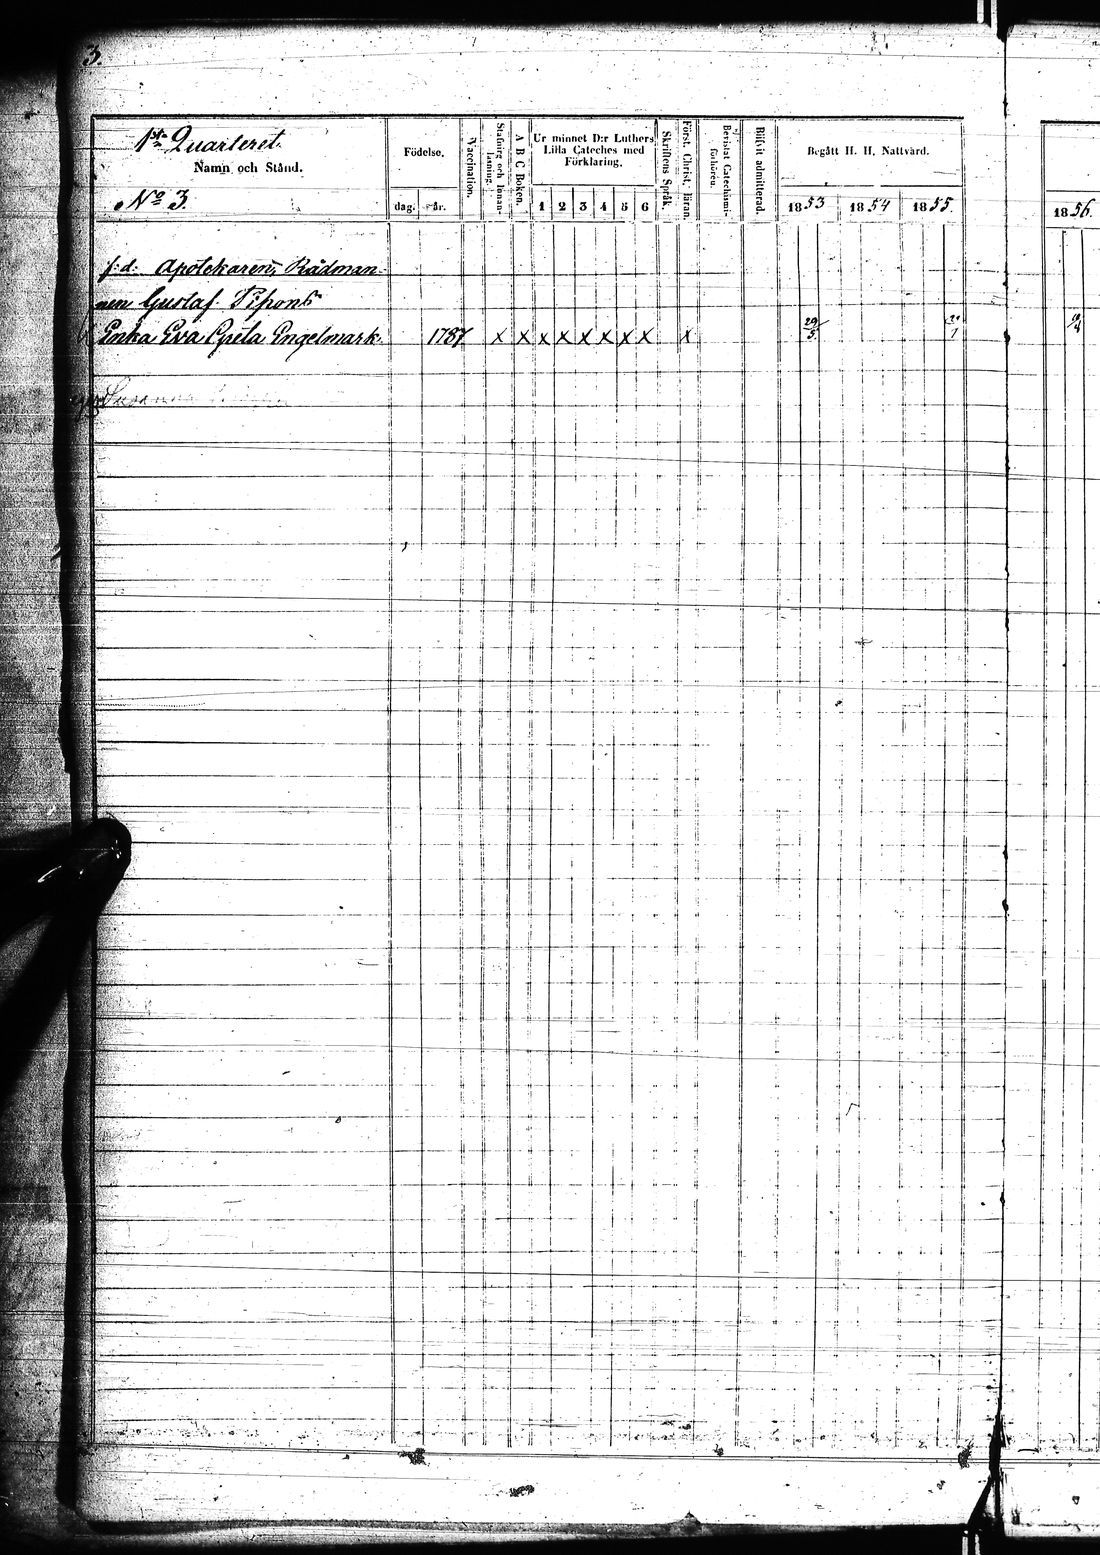 3.
1sta Quarteret.
Namn och Stånd.
No 3.
Födelse.
dag. år.
Vaccination.
Stafning och Innanläsning.
A B C Boken.
Ur minnet D:r Luthers
Lilla Cateches med
Förklaring.
1 2 3 4 5 6
Skriftens Språk.
Först. Christ. Läran.
Bevistat Catechismiförhören.
Blifvit admitterad.
Begått H. H. Nattvard.
1853 1854 1855.
1856.
f:d: Apotekaren, Rådman-
nen Gustaf
Enka Eva Greta Engelmark. 1787 x x x x x x x x x 29/5